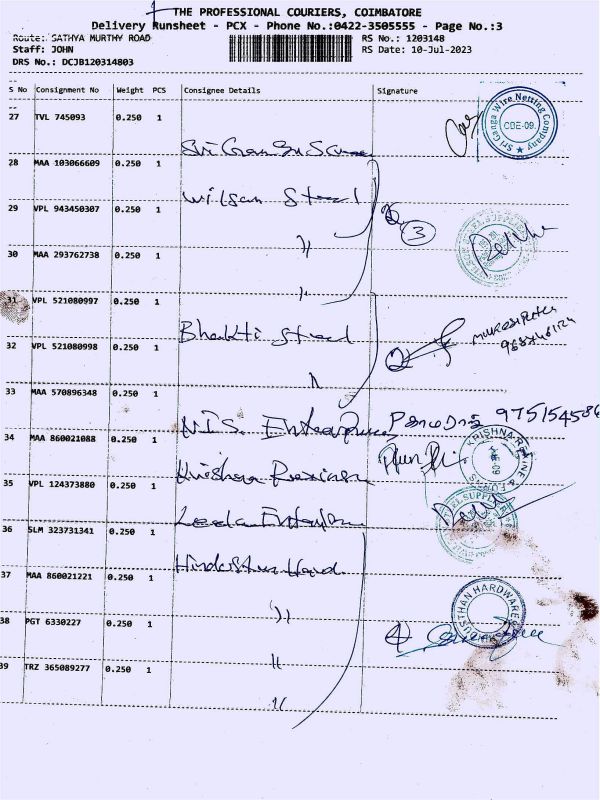 THE PROFESSIONAL COURIERS, COIMBATORE
Delivery Runsheet - PCX - Phone No.:0422-3505555 - Page No.:3
Route: SATHYA MURTHY ROAD
RS No.: 1203148
Staff: JOHN
RS Date: 10-Jul-2023
DRS No.: DCJB120314803
S No Consignment No Weight PCS Consignee Details Signature
27 TVL 745093 0.250 1
Sri Ganga Wire Netting Company
CBE-09.
28 MAA 103066609 0.250 1
Wilson Steel
29 VPL 943450307 0.250 1
"
3
30 MAA 293762738 0.250 1
"
31 VPL 521080997 0.250 1
Bhakti Steel
32 VPL 521080998 0.250 1
"
2
33 MAA 570896348 0.250 1
N.T.S. Enterprises
34 MAA 860021088 0.250 1
Krishna Rexine
KRISHNA REXINE &
35 VPL 124373880 0.250 1
Leela Enterprises
36 SLM 323731341 0.250 1
Hindusthan Hard
37 MAA 860021221 0.250 1
"
HARDWARES
4
38 PGT 6330227 0.250 1
"
39 TRZ 365089277 0.250 1
"